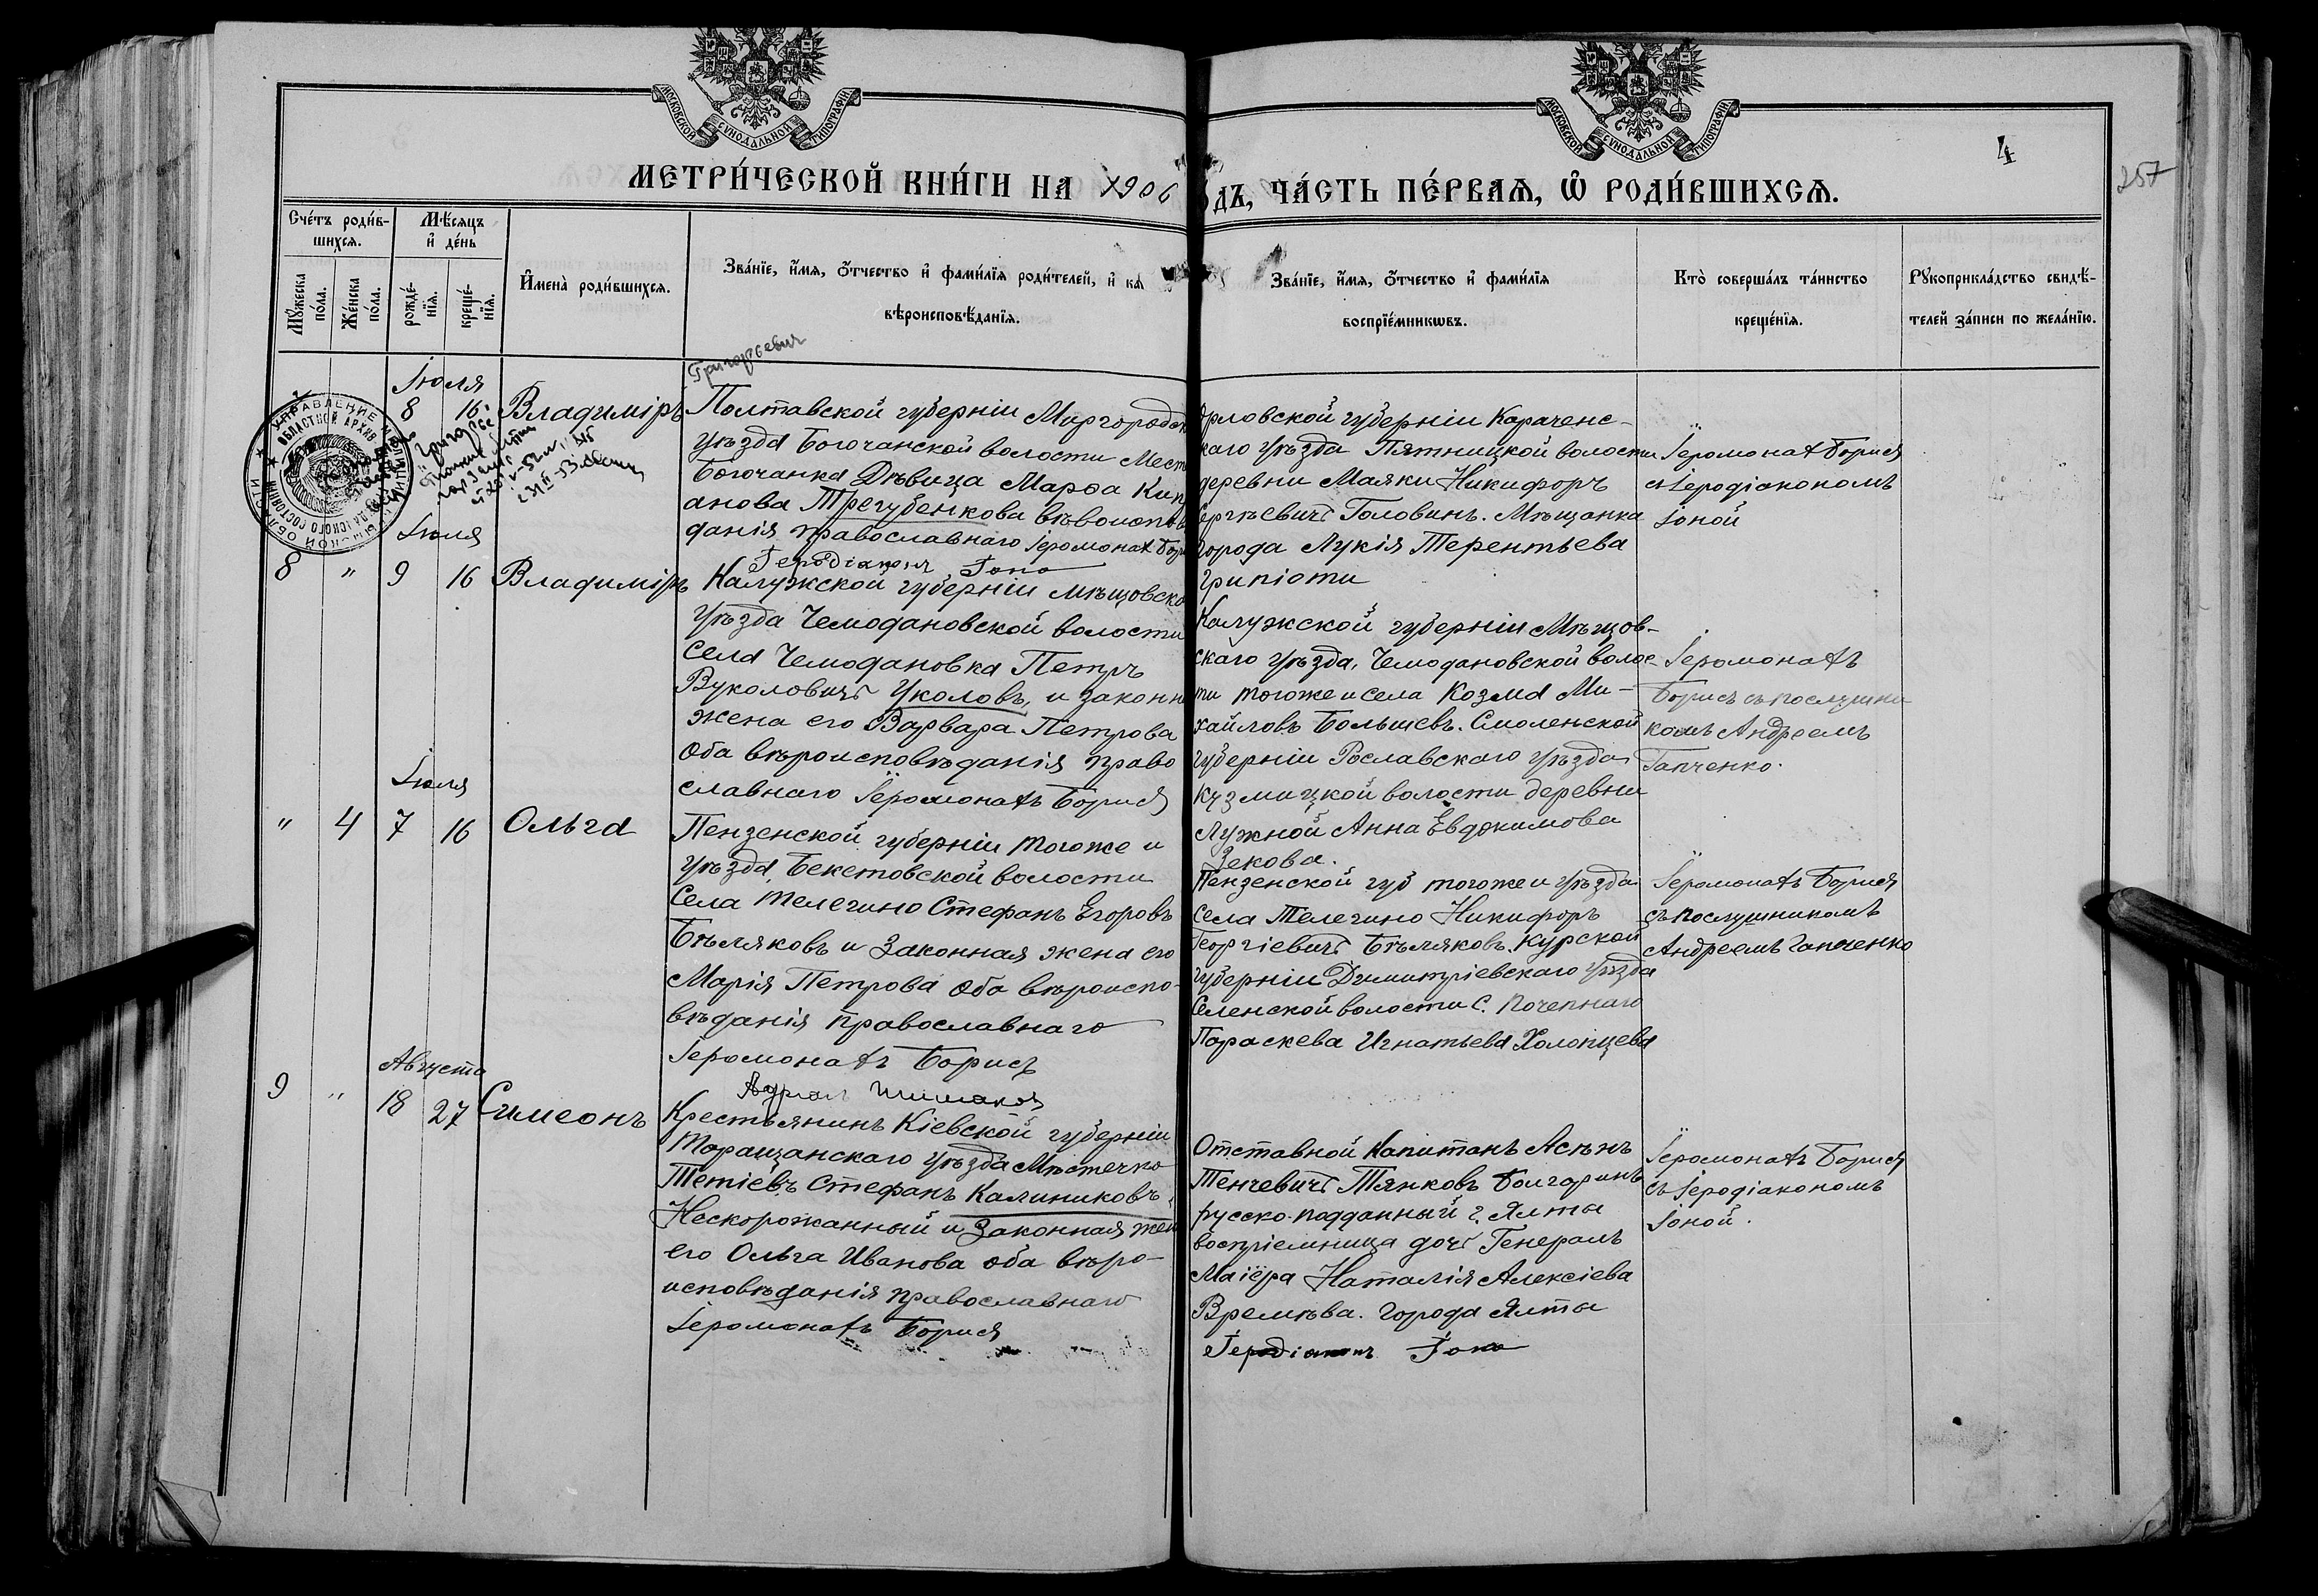 МОСКОВСКОЙ СѴНОДАЛЬНОЙ ТИПОГРАФІИ
МОСКОВСКОЙ СѴНОДАЛЬНОЙ ТИПОГРАФІИ
4
257
МЕТРИ́ЧЕСКОЙ КНИ́ГИ НА 1906
ДЪ, ЧА́СТЬ ПЕ́РВАѦ, Ѡ РОДИ́ВШИХСѦ.
Сче́тъ роди́в-
шихсѧ.
Мѣ́сѧцъ
и҆ де́нь
Мꙋ́жеска
по́ла.
Же́нска
по́ла.
рожде́-
нїѧ.
креще́-
нїѧ.
И҆мена̀ роди́вшихсѧ.
Зва́нїе, и҆́мѧ, ѻ҆́тчество и҆ фами́лїѧ роди́телей, и҆ ка
вѣроисповѣ́данїѧ.
Зва́нїе, и҆́мѧ, ѻ҆́тчество и҆ фами́лїѧ
воспрїе́мникѡвъ.
Кто̀ соверша́лъ та́инство
креще́нїѧ.
Рꙋкоприкла́дство свидѣ́-
телей за́писи по жела́нїю.
Григорьевич
Іюля
8 16 Владиміръ
Полтавской губерніи Миргородск
уѣзда Богочанской волости Мест
Богочанка Дѣвица Марѳа Кип
анова Трегубенкова вѣроиспов
данія православнаго Іеромонах Бори
Іеродіаконъ Іона
Орловской губерніи Караченс-
каго уѣзда Пятницкой волости
деревни Маяки Никифоръ
Сергѣевичъ Головинъ. Мѣщанка
города Лукія Терентьева
Грипіоти
Іеромонахъ Борисъ
съ Іеродіакономъ
Іоной
УПРАВЛЕНИЕ МИЛИЦИИ
ОБЛАСТНОЙ АРХИВ
Іюля
8 " 9 16 Владиміръ
Калужской губерніи Мѣщовско
уѣзда Чемодановской волости
села Чемодановка Петръ
Вуколовичъ Уколовъ, и законн
жена его Варвара Петрова
оба вѣроисповѣданія право
славнаго Іеромонахъ Борисъ
Калужской губерніи Мѣщов-
скаго уѣзда, Чемодановской волос-
ти тогоже и села Козма Ми-
хайловъ Большевъ. Смоленской
губерніи Рославскаго уѣзда
Кузмицкой волости деревни
Лужной Анна Евдокимова
Зекова.
Іеромонахъ
Борисъ съ послушни
комъ Андреемъ
Гапченко.
Іюля
" 4 7 16 Ольга
Пензенской губерніи тогоже и
уѣзда, Бекетовской волости
Села Телегино Стефанъ Егоровъ
Бѣляковъ и Законная жена его
Марія Петрова оба вѣроиспо-
вѣданія православнаго
Іеромонахъ Борисъ
Пензенской губ тогоже и уѣзда
села Телегино Никифоръ
Георгіевичъ Бѣляковъ. Курской
губерніи Димитріевскаго уѣзда
Селенской волости С. Почепнаго
Параскева Игнатьева Холопцева
Іеромонахъ Борисъ
съ послушникомъ
Андреемъ Гапченко
Августа
9 " 18 27 Симеонъ
Крестьянинъ Кіевской губерніи
Таращанскаго уѣзда Мѣстечко
Тетіевъ Стефанъ Калиниковъ
Нескорожанный и Законная жен
его Ольга Иванова оба вѣро-
исповѣданія православнаго
Іеромонахъ Борисъ
Отставной Капитанъ Асѣнъ
Тенчевичъ Тянковъ Болгаринъ
русско-подданный г. Ялты
воспріемница дочь Генералъ
Маіора Наталія Алексіева
Времѣва. города Ялты
Іеродіаконъ Іона
Іеромонахъ Борисъ
съ Іеродіакономъ
Іоной.